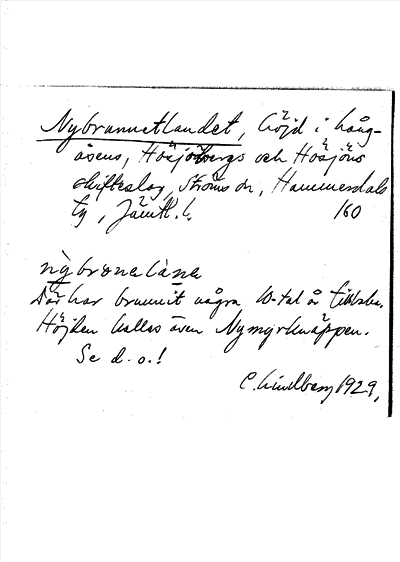 Nybrunnetlandet, höjd i Lång-
åsens, Hösjöbergs och Hösjöns
skifteslag, Ströms sn, Hammerdals
tg, Jämtl. l. 160
nỳbronelàne
Där har brunnit några 10-tal år tillbaka.
Höjden kallas även Nymyrknäppen.
Se d. o.!
C. Lindberg 1929.